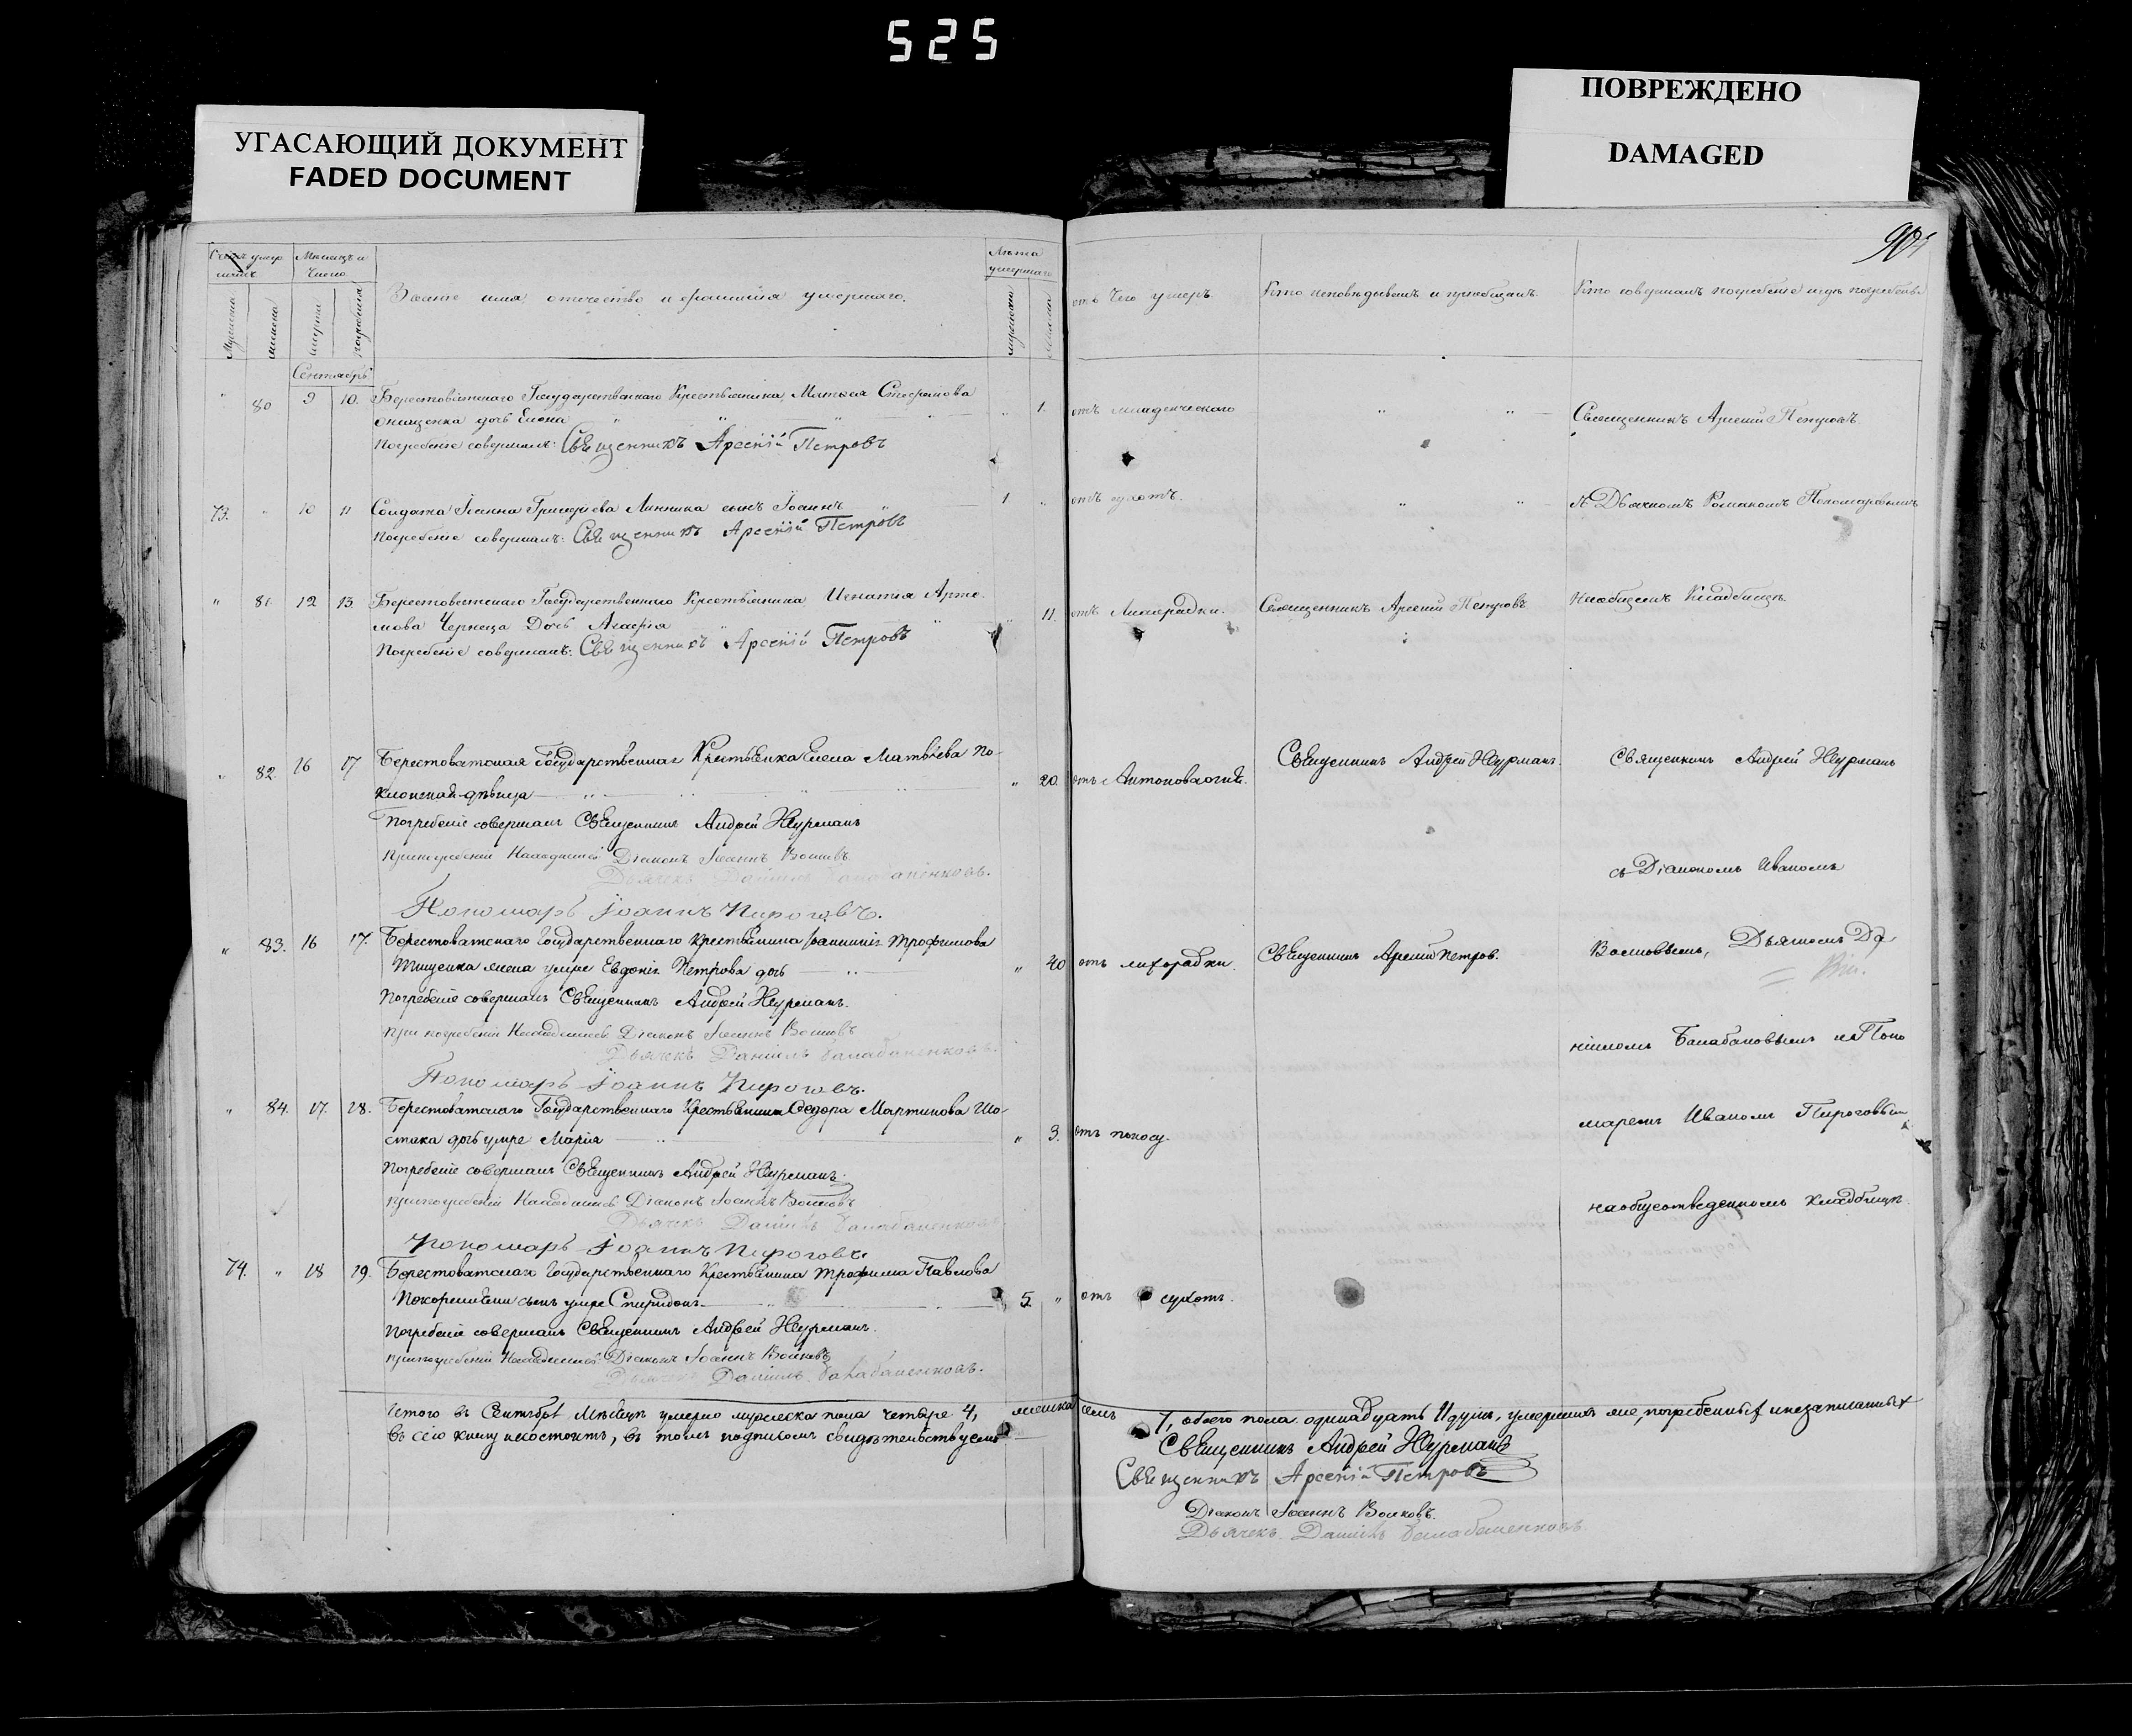 525
УГАСАЮЩИЙ ДОКУМЕНТ
FADED DOCUMENT
ПОВРЕЖДЕНО
DAMAGED
Мѣсяцъ и число
Лѣта умершаго
Званіе имя отечество и фамилія умершаго.
отъ чего умеръ.
Кто исповѣдывалъ и пріобщалъ.
Кто совершалъ погребеніе и гдѣ погребены
Сентябрь
" 80 9 10. Берестовацкаго Государственнаго Крестьянина, Матвея Стефанова
онищенка дочь Елена " 1. отъ младенческаго " " Священникъ Арсеній Петровъ.
Погребеніе совершалъ: Священникъ Арсеній Петровъ
73. " 10 11 Солдата Іоанна Григорьева Линника сынъ Іоаннъ 1 " отъ сухотъ. " " Съ Дьячкомъ Романомъ Пономаревымъ
Погребеніе совершалъ: Священникъ Арсеній Петровъ
" 81. 12 13. Берестоватскаго Государственнаго Крестьянина Игнатія Арте-
мова Чернеца Дочь Агафія " 11. отъ Лихорадки. Священникъ Арсеній Петровъ На общемъ Кладбищѣ.
Погребеніе совершалъ: Священникъ Арсеній Петровъ
" 82. 16 17 Берестоватская Государственная Крестьянка Елена Матвѣева По-
клонская дѣвица " 20. отъ Антонова огня. Священникъ Андрей Нурманъ. Священникъ Андрей Нурманъ
Погребеніе совершалъ Священникъ Андрей Нурманъ
При погребеніи Находились: Діаконъ Іоаннъ Волковъ съ Діакономъ Иваномъ
Дьячекъ Даніилъ Балабаненковъ.
Пономарь Іоаннъ Пироговъ.
" 83. 16 17. Берестоватскаго Государственнаго Крестьянина Трофимова Волковымъ, Дьячкомъ Да
Тищенка жена умре Евдокія Петрова дочь " 40 отъ лихорадки. Священникъ Арсеній Петров.
Погребеніе совершалъ Священникъ Андрей Нурманъ.
При погребеніи Находились Діаконъ Іоаннъ Волковъ ніиломъ Балабановымъ и Поно
Дьячекъ Даніилъ Балабаненковъ.
Пономарь Іоаннъ Пироговъ.
" 84. 17. 18. Берестоватскаго Государственнаго Крестьянина Федора Мартинова Шо- маремъ Иваномъ Пироговымъ
стака дочь умре Марія " 3. отъ поносу.
Погребеніе совершалъ Священникъ Андрей Нурманъ.
При погребеніи Находились Діаконъ Іоаннъ Волковъ на общеотведенномъ кладбищѣ.
Дьячекъ Даніилъ Балабаненковъ
Пономарь Іоаннъ Пироговъ
74. " 18 19. Берестоватскаго Государственнаго Крестьянина Трофима Павлова
сынъ умре Спиридонъ 5. " отъ сухотъ.
Погребеніе совершалъ Священникъ Андрей Нурманъ.
При погребеніи Находились: Діаконъ Іоаннъ Волковъ
Дьячекъ Даніилъ Балабаненковъ.
Итого въ Сентябрѣ Мѣсяцѣ умерло мужеска пола четыре 4, женска семь 7, обоего пола одинадцать 11 душъ, умершихъ же, погребенныхъ и незаписанныхъ
въ сію книгу несостоитъ, въ томъ подписомъ свидѣтельствуемъ
Священникъ Андрей Нурманъ
Священникъ Арсеній Петровъ
Діаконъ Іоаннъ Волковъ.
Дьячекъ Даніилъ Балабаненковъ